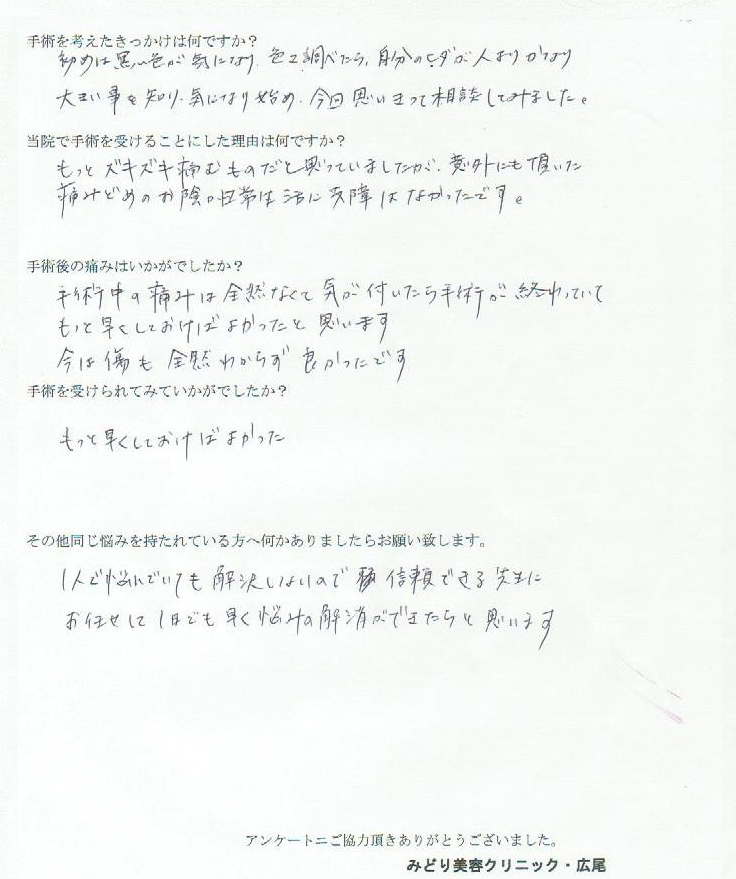 手術を考えたきっかけは何ですか？
初めは黒い色が気になり、色々調べたら、自分のヒダが人よりかなり
大きい事を知り、気になり始め、今回思いきって相談してみました。
当院で手術を受けることにした理由は何ですか？
もっとズキズキ痛むものだと思っていましたが、意外にも頂いた
痛みどめのお陰で日常生活に支障はなかったです。
手術後の痛みはいかがでしたか？
手術中の痛みは全然なくて気が付いたら手術が終わっていて
もっと早くしておけばよかったと思います
今は傷も全然わからず良かったです
手術を受けられてみていかがでしたか？
もっと早くしておけばよかった
その他同じ悩みを持たれている方へ何かありましたらお願い致します。
1人で悩んでいても解決しないので信頼できる先生に
お任せして1日でも早く悩みの解消ができたらと思います
アンケートニご協力頂きありがとうございました。
みどり美容クリニック・広尾